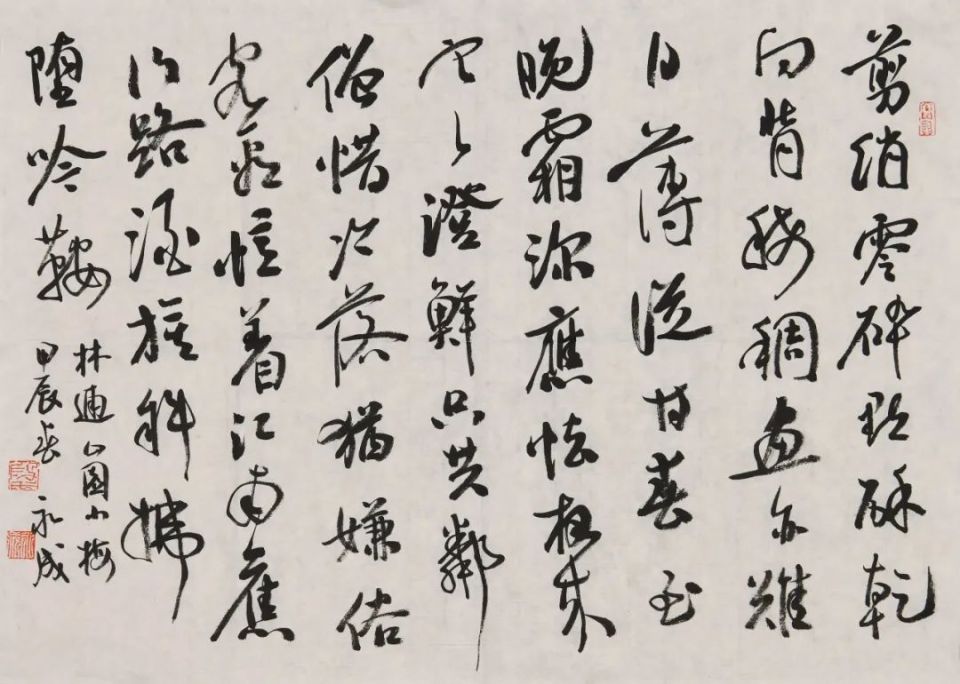 剪綃零碎點酥乾
向背稀稠畫亦難
日薄從甘春至
晚霜深應怯夜來
寒澄鮮只共鄰
僧惜冷落猶嫌俗
客看憶着江南舊
行路酒旗斜拂
墮吟鞍
林逋山園小梅
甲辰春 永成